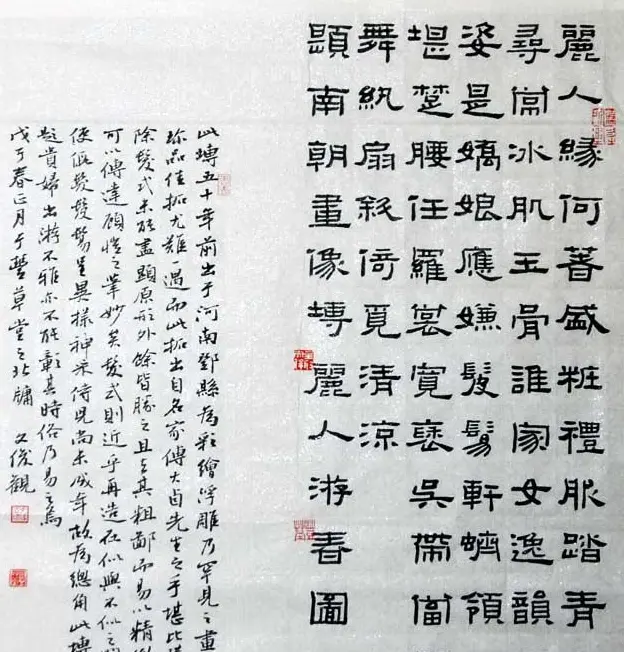 麗人緣何著盛粧禮服踏青
尋冰肌玉骨誰家女逸韻
姿是嬌娘應嫌髮軒螓領
堪楚腰任羅裳寬吳帶當
舞紈扇斜倚覓清涼
題南朝畫像塼麗人游春圖
此塼五十年前出于河南鄧縣為彩繪浮雕乃罕見之畫
珎品佳拓尤難一遇而此拓出自名家傅大卣先生之手堪比
除髮式未能盡顯原形外餘皆勝之且去其粗鄙而易以精
可以傳達顧愷之筆妙矣髮式則近乎再造在似與不似之間
使假髮髮髻呈異樣神采侍児尚未成年故為總角此塼
題貴婦出游不雅亦不能彰其時俗乃易之為
戊子春正月于豐草堂之北牖 文俊觀